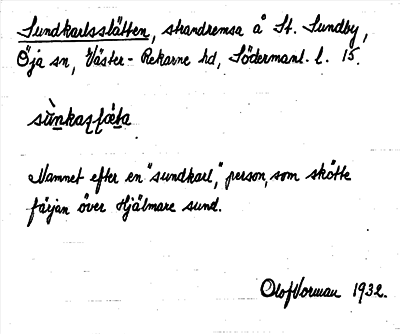 Sundkarlsslätten, strandremsa å St. Sundby,
Öja sn, Väster-Rekarne hd, Södermanl. l. 15.
Namnet efter en "sundkarl," person, som skötte
färjan över Hjälmare sund.
Olof Vorman 1932.